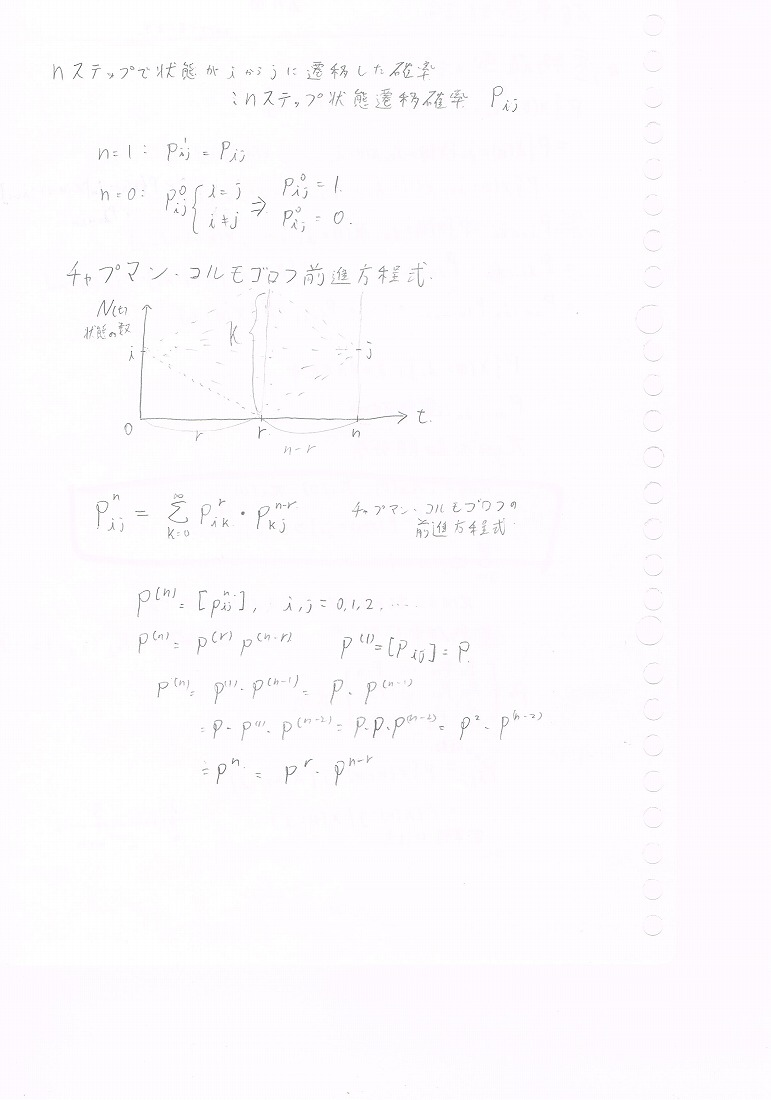 nステップで状態がiからjに遷移した確率
:nステップ状態遷移確率 Pij
n=1: P¹ij = Pij
n=0: P⁰ij { i=j ⇒ P⁰ij = 1.
i≠j P⁰ij = 0.
チャプマン・コルモゴロフ前進方程式.
N(t)
状態の数
K
i
j
0 r n t.
r n-r
Pⁿij = Σ[k=0→∞] Pʳik・Pⁿ⁻ʳkj チャプマン・コルモゴロフの
前進方程式.
P⁽ⁿ⁾ = [Pⁿij], i,j = 0,1,2,……
P⁽ⁿ⁾ = P⁽ʳ⁾ P⁽ⁿ⁻ʳ⁾ P⁽¹⁾=[Pij]=P.
P⁽ⁿ⁾ = P⁽¹⁾・P⁽ⁿ⁻¹⁾ = P・P⁽ⁿ⁻¹⁾
= P・P⁽¹⁾・P⁽ⁿ⁻²⁾ = P・P・P⁽ⁿ⁻²⁾ = P²・P⁽ⁿ⁻²⁾
= Pⁿ = Pʳ・Pⁿ⁻ʳ